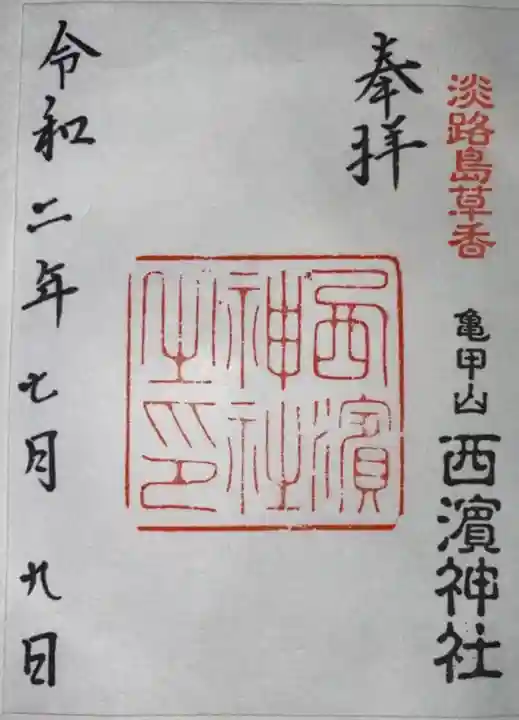 淡路島草香
亀甲山 西濱神社
奉拝
西濱
神社
之印
令和二年七月九日